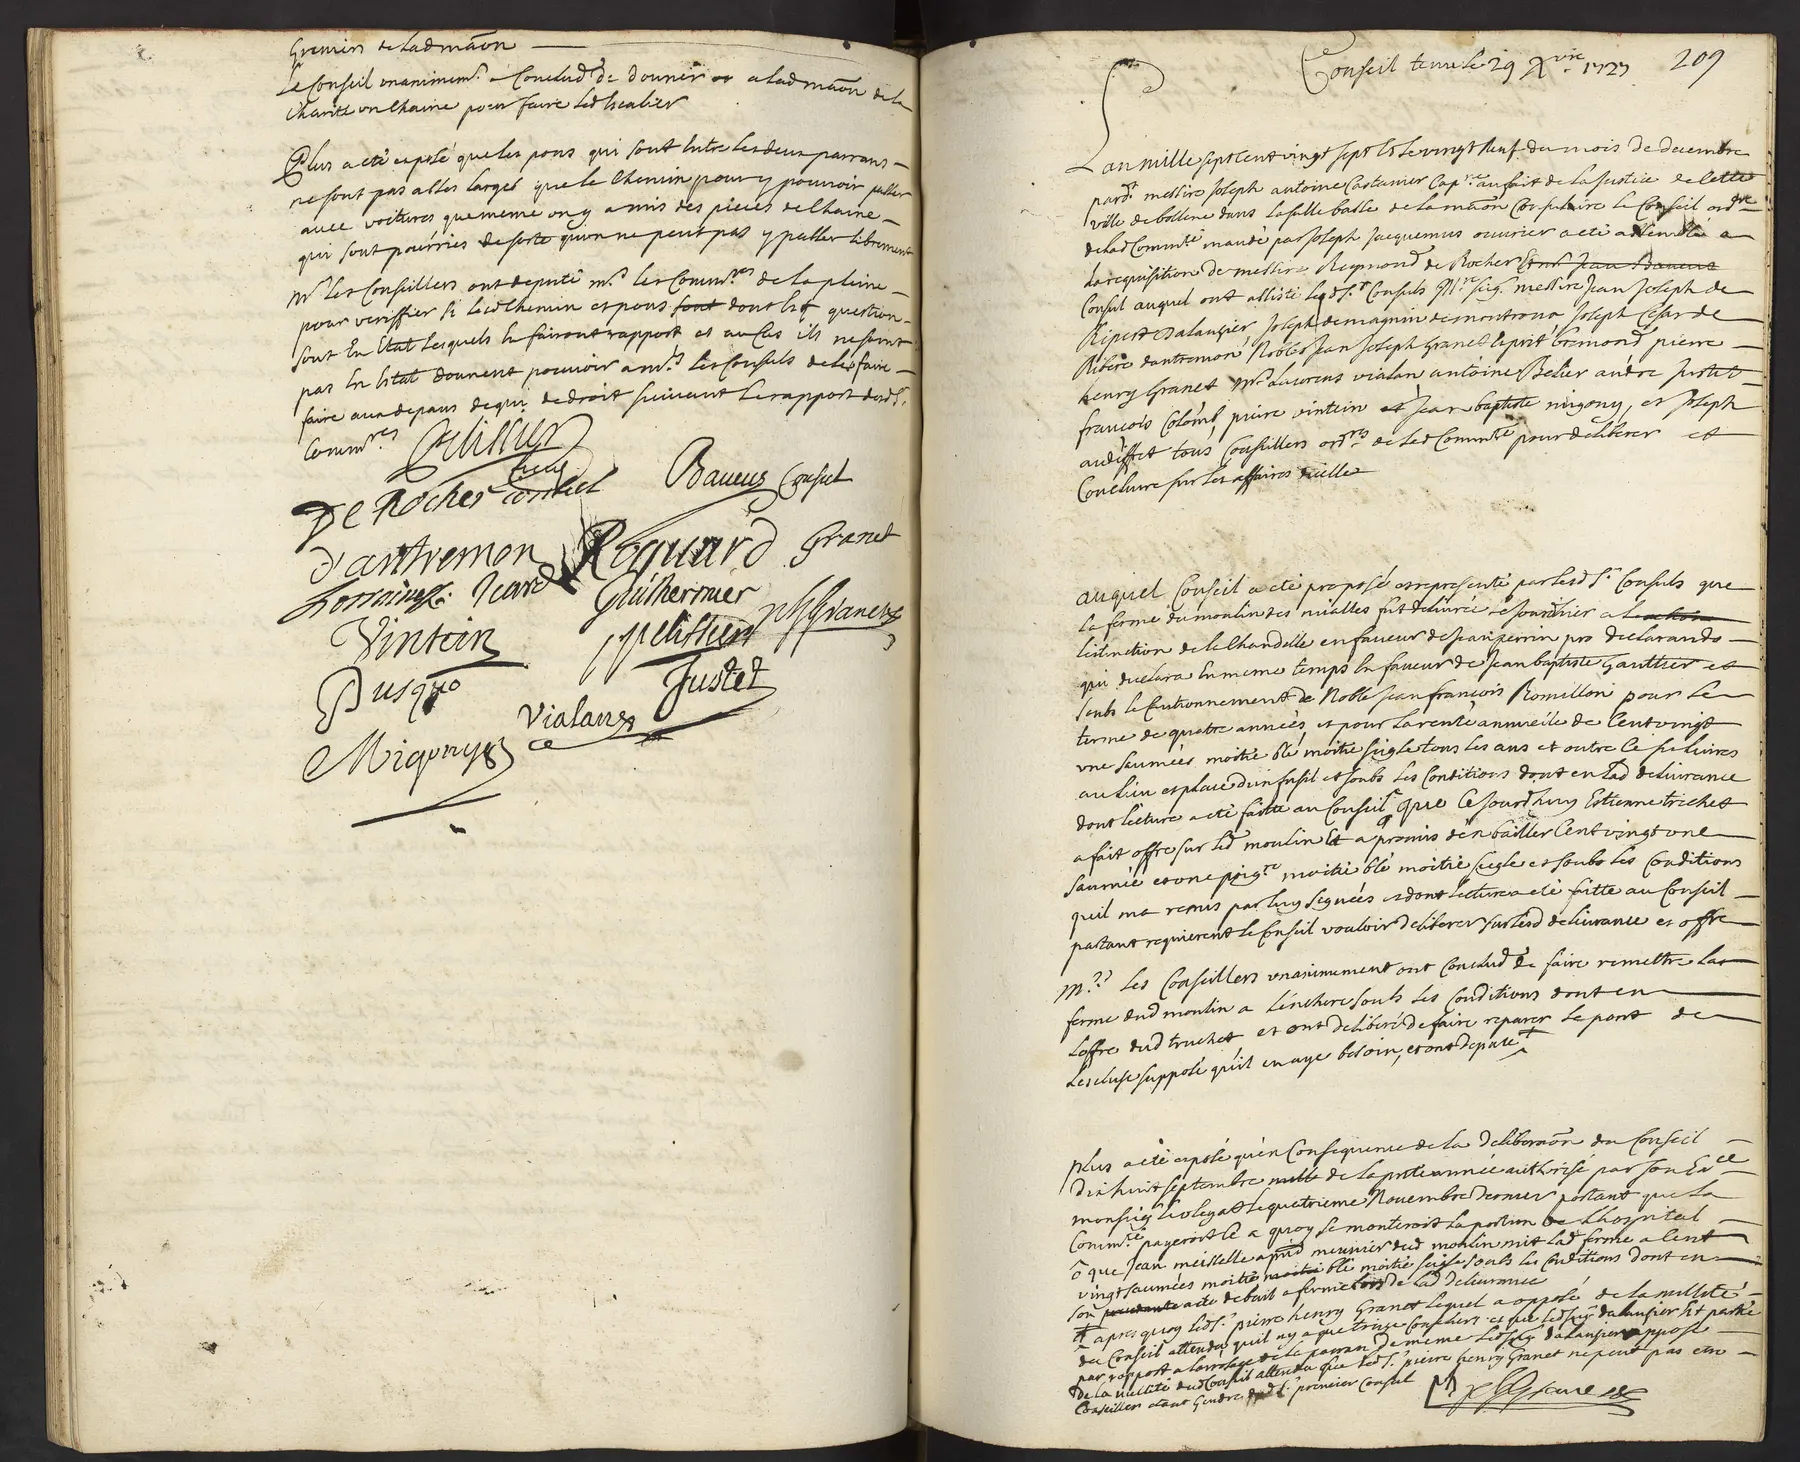 Greniers de lad maōn
Le Conseil unanimemt a Conclud de donner a lad maōn de la
Charité un Chaine pour faire led Escalier
Plus a eté exposé que les pons qui sont Entre les deux parrans
ne sont pas asses larges que le Chemin pour y pouvoir passer
avec voitures que meme on y a mis des pieces de Chaine
qui sont pourries de sorte qu'on ne peut pas y passer librement
Mrs les Conseillers ont deputé mrs les Commres de la pleine
pour veriffier si led Chemin et pons sont dont est question
sont En Etat lesquels En fairont rapport et au Cas ils ne seront
pas En Estat donnent pouvoir a mrs les Consuls de les faire
faire aux depans de qui de droit suivant le rapport desds
Commres
De Rocher Consul
Baueux Consul
d'antremon
Roquard
Granet
Lorraine
Icard
Guilhermier
PHGranet
Vintein
Pelissier
Dusquo
Justet
Vialans
Migonys
Conseil tenu le 29 Xbre 1727
209
L'an mille sept Cent vingt sept Et le vingt Neuf du mois de decembre
pardt messire Joseph antoine Castanier Capne au fait de la Justice de Cette
ville de bollene dans la salle basse de la maōn Consulaire le Conseil ordre
de lad Commté mandé par Joseph Jacquemus ouvrier a eté assemblé a
la requisition de messire Reymond de Rocher Et mr Jean Baueux
Consul auquel ont assisté lesds srs Consuls messire Jean Joseph de
Ripert Dalauzier Joseph de magnin de montroux Joseph Cesar de
Ribere dantremon Nobles Jean Joseph Granet Esprit bremond pierre
henry Granet Mrs Laurens vialan antoine Belier andré Justet
françois Colomb, pierre vintein et Jean baptiste migony, et Joseph
audiffret tous Conseillers ordres de lad Commté pour deliberer et
Conclurre sur les affaires d'icelle
auquel Conseil a eté proposé et representé par lesds srs Consuls que
la ferme du moulin des mialles fut delivrée le jourd'hier a
l'extinction de la Chandelle en faveur de Jean perrin pro declarando
qui declara En meme temps En faveur de Jean baptiste Gauthier et
soubs le Cautionnement de Noble Jean françois Romillon pour le
terme de quatre années, et pour la rente annuelle de Cent vingt
une saumées moitié blé moitié sigle tous les ans et outre Ce six livres
au lieu et place d'un fusil et soubs les Conditions dont en lad delivrance
dont lecture a eté faitte au Conseil, que Ce Jourdhuy Estienne truchet
a fait offre sur led moulin et a promis d'en bailler Cent vingt une
saumée et une moitié blé moitié sigle et soubs les Conditions
quil ma remis par luy signées et dont lecture a eté faitte au Conseil
partant requierent le Conseil vouloir deliberer sur lad delivrance et offre
Mrs les Conseillers unanimement ont Conclud de faire remettre la
ferme dud moulin a l'enchere soubs les Conditions dont en
l'offre dud truchet et ont deliberé de faire reparer le pont de
l'Escluse supposé qu'il en aye besoin, et ont deputé
Plus a eté exposé qu'en Consequence de la deliberaōn du Conseil
dixhuit septembre de la pnte année authorisé par son Exce
monsieg le vice legat le quatrieme Novembre dernier portant que la
Commté payeroit Ce a quoy se monteroit la portion de L'hospital
que Jean meisselle munier dud moulin mit lad ferme a Cent
vingt saumées moitié blé moitié seigle soubs les Conditions dont en
son acte de bail a ferme de lad delivrance
apres quoy leds pierre henry Granet lequel a opposé de la nullité
du Conseil attendu qu'il ny a que treize Conseillers et que led sieg dalauzier Est partie
par rapport a de meme led sieg dalauzier oppose
de la nullité dud Conseil attendu que leds pierre henry Granet ne peut pas etre
Conseiller etant Gendre duds premier Consul
PHGranet